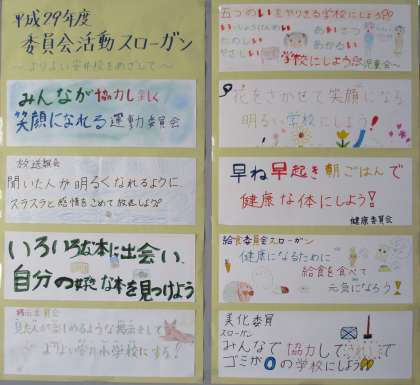 平成29年度
委員会活動スローガン
みんなが協力し楽しく
笑顔になれる運動委員会
放送委員会
聞いた人が明るくなれるように、
スラスラと感情をこめて放送しよう
いろいろな本に出会い、
自分の好きな本を見つけよう
掲示委員会
見た人が楽しめるような掲示をして
五つのいをやりきる学校にしよう!!
いっしょうけんめい あいさつ
たのしい あかるい
やさしい 学校にしよう 児童会
花をさかせて笑顔になる
明るい学校にしよう
早ね早起き朝ごはんで
健康な体にしよう!
健康委員会
給食委員会スローガン
健康になるために
給食を食べて
元気になろう!
美化委員
スローガン
みんなで協力して
ゴミが0の学校にしよう!!